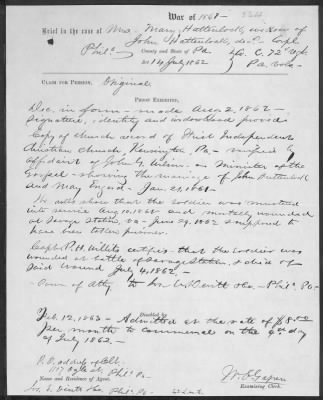 War of 1861
Brief in the case of Mrs. Mary Hattenlock, widow of
John Hattenlock, dec'd Corpl
Phil'a County and State of Pa Co. C. 72" Regt
Act 14 July, 1862 Pa. Vols
Claim for Pension, Original
Proof Exhibited,
Dec. in form - made Aug 2, 1862 -
Signature, identity and widowhood proved
Copy of church record of First Independent
Christian Church, Kensington, Pa - verified by
affidavit of John G. a Minister of the
Gospel - showing the marriage of John Hattenlock
and May - Jan. 21, 1861 -
show that the soldier was mustered
into service Aug 10, 1861 and mortally wounded
at Savage Station, Va - June 29, 1862 & supposed to
have been taken prisoner.
Capt. P.H. Willets certifies - that the soldier was
wounded at battle of Savage Station, & died of
said wound July 4, 1862. -
Power of Atty to Devitt Phil'a, Pa -
Disability
Feb. 12, 1863 - Admitted at the rate of $8.00
per month to commence on the 4th day
of July 1862.
P.O. address of
1117 Phil'a Pa
Name and Residence of Agent.
Devitt Phil'a Pa
Examining Clerk.